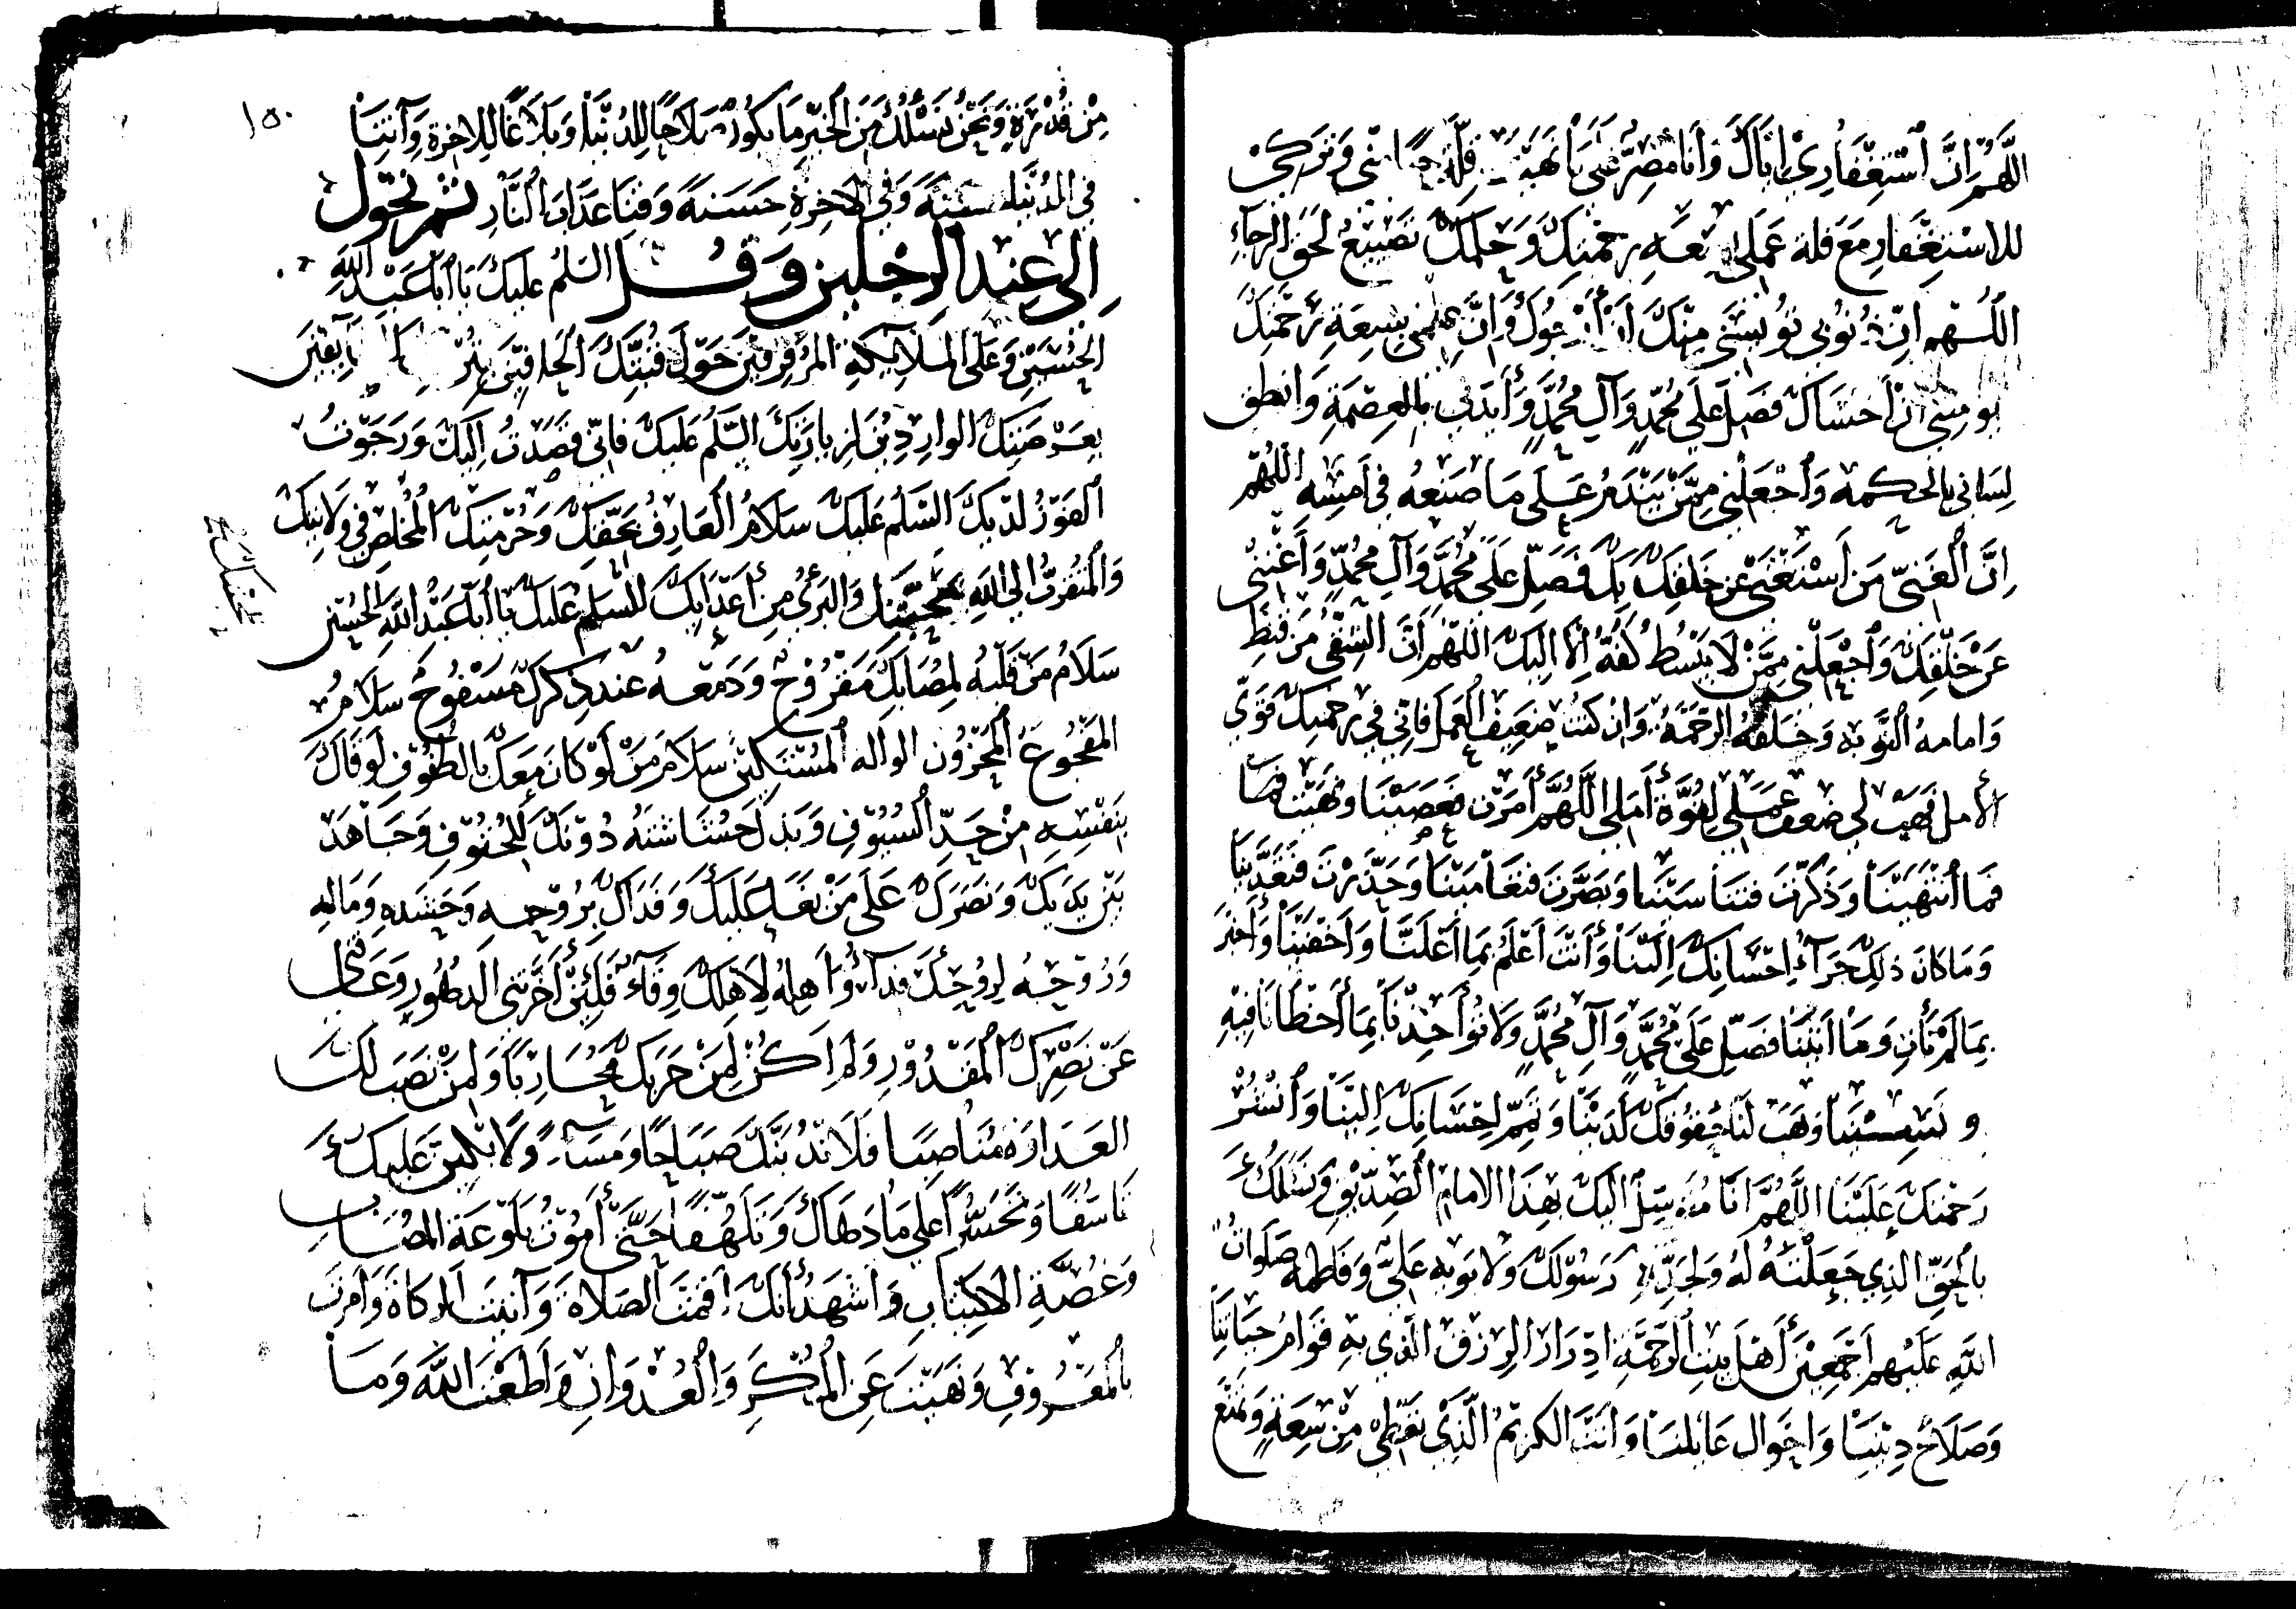 اللَّهُمَّ إِنَّ اسْتِغْفَارِي إِيَّاكَ وَأَنَا مُصِرٌّ عَلَى مَا نَهَيْتَ قِلَّةُ وَتَرْكِي
للاسْتِغْفارِ مَعَ رَحْمَتِكَ وَحِلْمِكَ تَضْيِيعٌ لِحَقِّ الرَّجَاءِ
اللّهم إنّ ذُنُوبي تُؤيِسُني مِنْكَ أنْ أَرْجُوكَ وَإِنَّ عِلْمِي بِسِعَةِ رَحْمَتِكَ
يؤمنني أن أخشاك فَصَلِّ عَلَى مُحَمَّدٍ وَآلِ مُحَمَّدٍ وَأَيِّدْنِي بِالْعِصْمَةِ وَانطق
لِسَانِي بِالْحِكْمَة وَاجْعَلْنِي مِمَّنْ يَنْدَمُ عَلَى مَا صَنَعَهُ فِي أَمْسِهِ اللَّهُمَّ
إِنَّ الْغَنِيَّ مَنِ اسْتَغْنَى عَنْ خَلْقِكَ بِكَ فَصَلِّ عَلَى مُحَمَّدٍ وَآلِ مُحَمَّدٍ وَأَغْنِنِي
عَنْ خَلْقِكَ وَاجْعَلْنِي مِمَّنْ لَا يَبْسُطُ كَفَّهُ إِلَّا إِلَيْكَ اللَّهُمَّ إِنَّ الشَّقِيَّ مَنْ قَنَطَ
وَامامهُ التَّوْبة وَخَلْفَهُ الرَّحْمَةُ وَإِنْ كُنْتُ ضَعِيفَ الْعَمَلِ فَإِنِّي فِي رَحْمَتِكَ قَوِيُّ
الأمل فَهَبْ لي ضعف عَمَلِي لِقُوَّةِ أَمَلِي اللَّهُمَّ أَمَرْتَ فَعَصَيْنَا وَنَهَيْتَ
فَمَا انْتَهَيْنَا وَذَكَّرْتَ فَتَنَاسَيْنَا وَبَصَّرْتَ فَتَعَامَيْنَا وَحَذَّرْتَ فَتَعَدَّيْنَا
وَمَا كَانَ ذلِكَ جَزَاءَ إِحْسَانِكَ إِلَيْنَا وَأَنْتَ أَعْلَمُ بِمَا أَعْلَنَّا وَأَخْفَيْنَا وَأَخْبَرُ
بِمَا لَمْ نَأْتِ وَمَا أَتَيْنَا فَصَلِّ عَلَى مُحَمَّدٍ وَآلِ مُحَمَّدٍ وَلَا تُؤَاخِذْنَا بِمَا أَخْطَأْنَا فِيهِ
وَنَسِينَا وَهَبْ لَنَا حُقُوقَكَ لَدَيْنَا وَتَمِّمْ إِحْسَانَكَ إِلَيْنَا وَانْشُرْ
رَحْمَتَكَ عَلَيْنَا اللَّهُمَّ إِنَّا نتوسّلُ إِلَيْكَ بِهَذَا الامَامِ الصِّدِّيقِ وَنَسْأَلُكَ
بِالْحَقِّ الَّذِي جَعَلْتَهُ لَهُ وَلِجَدِّهِ رَسُولِكَ وَلأَبَوَيْهِ عَلِيٍّ وَفَاطِمَةَ صَلَوَاتُ
اللَّهِ عَلَيْهِمْ أَجْمَعِينَ أَهْلَ بَيْتِ الرَّحْمَةِ إِدْرَارَ الرِّزْقِ الَّذِي بِهِ قِوَامُ حَيَاتِنَا
وَصَلَاحُ دِينِنَا وَاحْوَال عَائِلتنَا وَأَنْتَ الْكَرِيمُ الَّذِي تُعْطِي مِنْ سِعَةٍ وَتَمْنَعُ
١٥٠
مِنْ قُدْرَةٍ وَنَحْنُ نَسْأَلُكَ مِنَ الْخَيْرِ مَا يَكُونُ صَلَاحًا لِلدُّنْيَا وَبَلَاغًا لِلآخِرَةِ وَآتِنَا
فِي الدُّنْيَا حَسَنَةً وَفِي الْآخِرَةِ حَسَنَةً وَقِنَا عَذَابَ النَّارِ ثم تحوّل
إلى عند الرجلين وقُل السَّلَمُ عَلَيْكَ يَا أَبَا عَبْدِ اللَّهِ
الْحُسَيْنِ وَعَلَى الْمَلَائِكَةِ الْمُرَفْرِفِينَ حَوْلَ قُبَّتِكَ الْحَافِّينَ
بِعَرْصَتِكَ الْوَارِدِينَ لِزِيَارَتِكَ السَّلَمُ عَلَيْكَ فَإِنِّي قَصَدْتُ إِلَيْكَ وَرَجَوْتُ
الْفَوْزَ لَدَيْكَ السَّلَمُ عَلَيْكَ سَلَامُ الْعَارِفِ بِحَقِّكَ وَحُرْمَتِكَ الْمُخْلِصِ فِي وَلَايَتِكَ
وَالْمُتَقَرِّبِ إِلَى اللَّهِ بِمَحَبَّتِكَ وَالْبَرِيءِ مِنْ أَعْدَائِكَ السلم عَلَيْكَ يَا أَبَا عَبْدِ اللَّهِ الْحُسَيْنِ
سَلَامُ مَنْ قَلْبُهُ لِمُصَابِكَ مَقْرُوحٌ وَدَمْعُهُ عِنْدَ ذِكْرِكَ مَسْفُوحٌ سَلَامُ
الْمَفْجُوعِ الْمَحْزُونِ الواله الْمُسْتَكِينِ سَلَامَ مَنْ لَوْ كَانَ مَعَكَ بِالطُّفُوفِ لَوَقَاكَ
بِنَفْسِهِ مِنْ حَدِّ السُّيُوفِ وَبَذَلَ حُشَاشَتَهُ دُونَكَ لِلْحُتُوفِ وَجَاهَدَ
بَيْنَ يَدَيْكَ وَنَصَرَكَ عَلَى مَنْ بَغَى عَلَيْكَ وَفَدَاكَ بِرُوحِهِ وَجَسَدِهِ وَمَالِهِ
وَرُوحُهُ لِرُوحِكَ فِدَاءٌ وَأَهْلُهُ لِأَهْلِكَ وِقَاءٌ فَلَئِنْ أَخَّرَتْنِي الدُّهُورُ وَعَاقَنِي
عَنْ نَصْرِكَ الْمَقْدُورُ وَلَمْ أَكُنْ لِمَنْ حَارَبَكَ مُحَارِبًا وَلِمَنْ نَصَبَ لَكَ
الْعَدَاوَةَ مُنَاصِبًا فَلَأَنْدُبَنَّكَ صَبَاحًا وَمَسَاءً وَلَأَبْكِيَنَّ عَلَيْكَ
تَأَسُّفًا وَتَحَسُّرًا عَلَى مَا دَهَاكَ وَتَلَهُّفًا حَتَّى أَمُوتَ بِلَوْعَةِ الْمُصَابِ
وَغُصَّةِ الِاكْتِيَابِ وَأَشْهَدُ أَنَّكَ أَقَمْتَ الصَّلَاةَ وَآتَيْتَ الزَّكَاةَ وَأَمَرْتَ
بِالْمَعْرُوفِ وَنَهَيْتَ عَنِ الْمُنْكَرِ وَالْعُدْوَانِ وَأَطَعْتَ اللَّهَ وَمَا